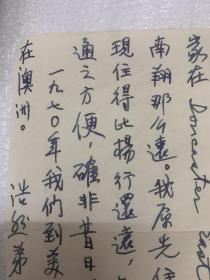 家在 Doncaster East
南翔那么遠。我原先住
現住得比揚行還遠，
通之方便，確非昔日
一九七0年我們到美
在澳洲。
浩然弟